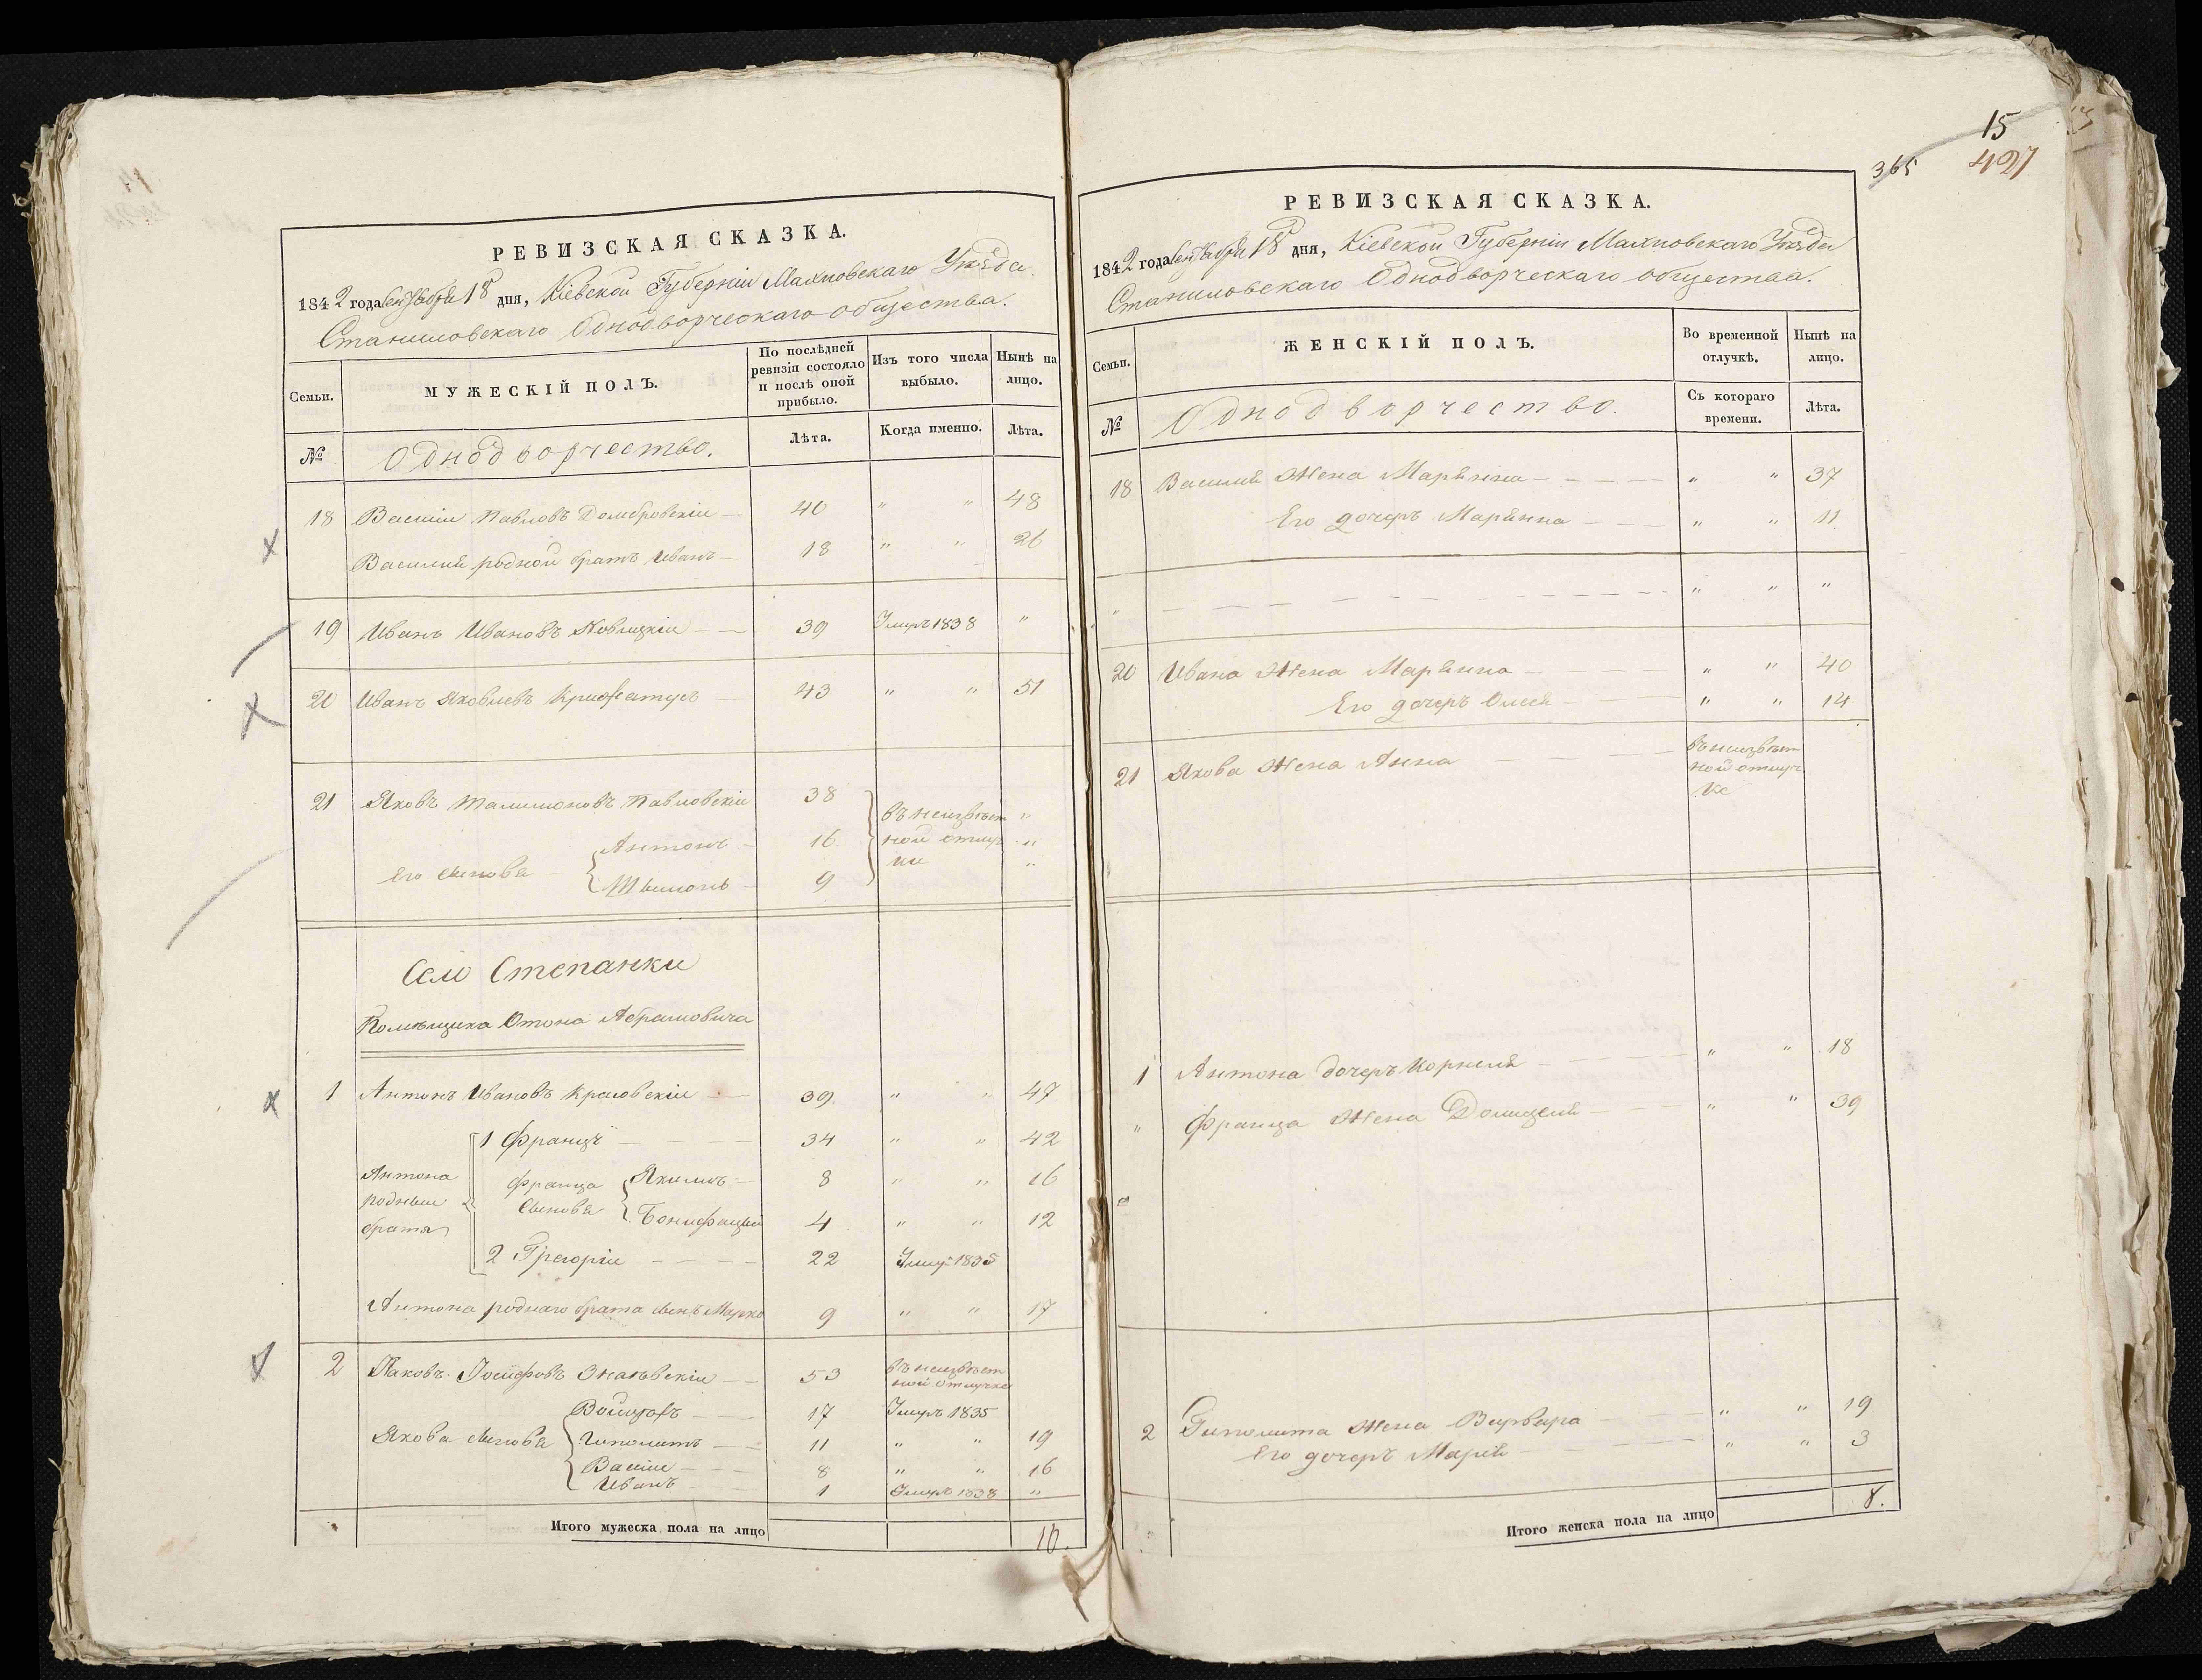 РЕВИЗСКАЯ СКАЗКА.
1842 года Сентября 18 дня, Кіевской Губерніи Махновскаго Уѣзда
Станиловскаго Однодворческаго общества.
Семьи.
МУЖЕСКІЙ ПОЛЪ.
По послѣдней ревизіи состояло и послѣ оной прибыло.
Изъ того числа выбыло.
Нынѣ на лицо.
№
Однодворчество.
Лѣта.
Когда именно.
Лѣта.
18 Василіи Павловъ Домбровскіи — 40 " " 48
Василія родной братъ Иванъ — 18 " " 26
19 Иванъ Ивановъ — 39 Умеръ 1838 "
20 Иванъ Яковлевъ 43 " " 51
21 Яковъ Павловскіи 38 "
его сынова — Антонъ — 16 "
Шимонъ — 9 "
въ неизвѣст
ной отлуч
ки
Село Степанки
Помѣщика Отона Абрамовича
1 Антонъ Ивановъ — 39 " " 47
1 Францъ — 34 " " 42
Антона родныи братя
Франца сынова Якимъ — 8 " " 16
Бонифацый 4 " " 12
2 Грегоріи — 22 Умеръ 1835
Антона роднаго брата сынъ Марко 9 " " 17
2 Яковъ Іосифовъ — 53 въ неизвѣст
ной отлучке
Якова сынова
Войцехъ — 17 Умеръ 1835
Гиполитъ — 11 " " 19
Василіи — 8 " " 16
Иванъ — 1 Умеръ 1838 "
Итого мужеска пола на лицо
10.
15
365 427
РЕВИЗСКАЯ СКАЗКА.
1842 года Сентября 18 дня, Кіевской Губерніи Махновскаго Уѣзда
Станиловскаго Однодворческаго общества.
Семьи.
ЖЕНСКІЙ ПОЛЪ.
Во временной отлучкѣ.
Нынѣ на лицо.
№
Однодворчество.
Съ котораго времени.
Лѣта.
18 Василия Жена Марянна — " " 37
Его дочеръ Марянна — " " 11
" — " " "
20 Ивана Жена Марянна — " " 40
Его дочеръ Олеся — " " 14
21 Якова Жена Анна — въ неизвѣст
ной отлуч
ке
1 Антона дочеръ Корнеля — " " 18
" Франца Жена Домицеля — " " 39
2 Гиполита Жена Варвара — " " 19
Его дочеръ Марія — " " 3
Итого женска пола на лицо
8.